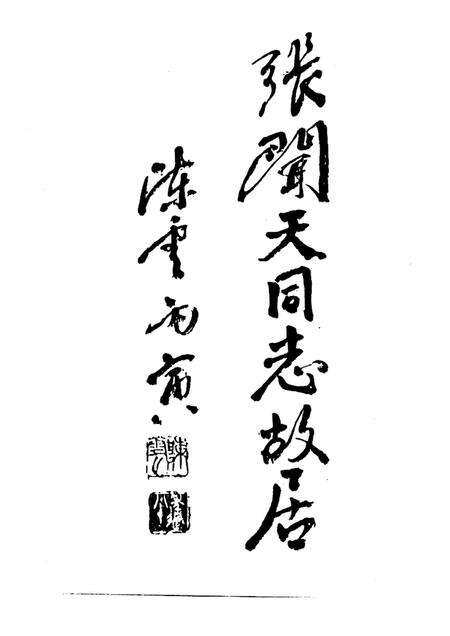 張聞天同志故居
陈雲丙寅
陳雲